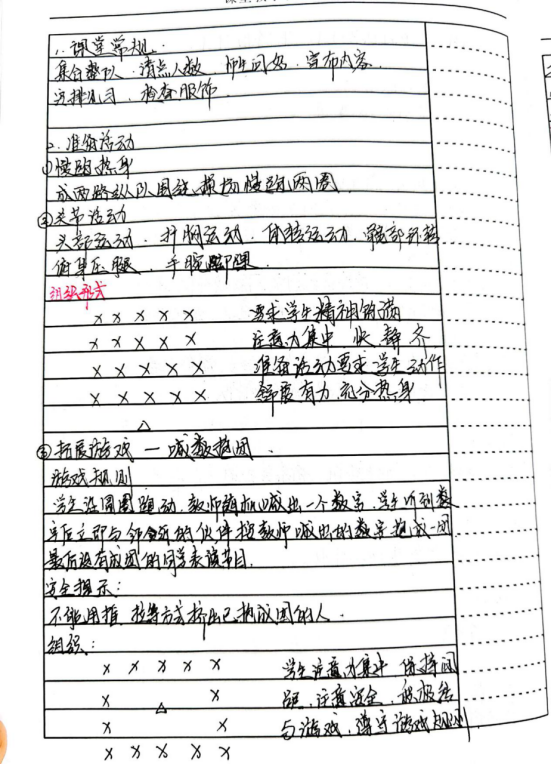 1. 课堂常规.
集合整队. 清点人数 师生问好. 宣布内容.
安排见习. 检查服饰.
2. 准备活动
①慢跑热身
成两路纵队围绕操场慢跑两圈.
②关节活动
头部运动. 扩胸运动. 体转运动. 髋部环转
俯身压腿. 手腕脚踝.
组织形式
X X X X X 要求学生精神饱满
X X X X X 注意力集中 快 静 齐
X X X X X 准备活动要求学生动作
X X X X X 舒展有力 充分热身
△
③拓展游戏 — 喊数抱团.
游戏规则
学生沿圆圈跑动. 教师随机喊出一个数字. 学生听到数
字后立即与邻近的伙伴按教师喊出的数字抱成一团
最后没有成团的同学表演节目.
安全提示:
不能用推 拉等方式挤出已抱成团的人.
组织:
X X X X X 学生注意力集中 保持间
X △ X 距, 注意安全, 积极参
X X 与游戏, 遵守游戏规则
X X X X X